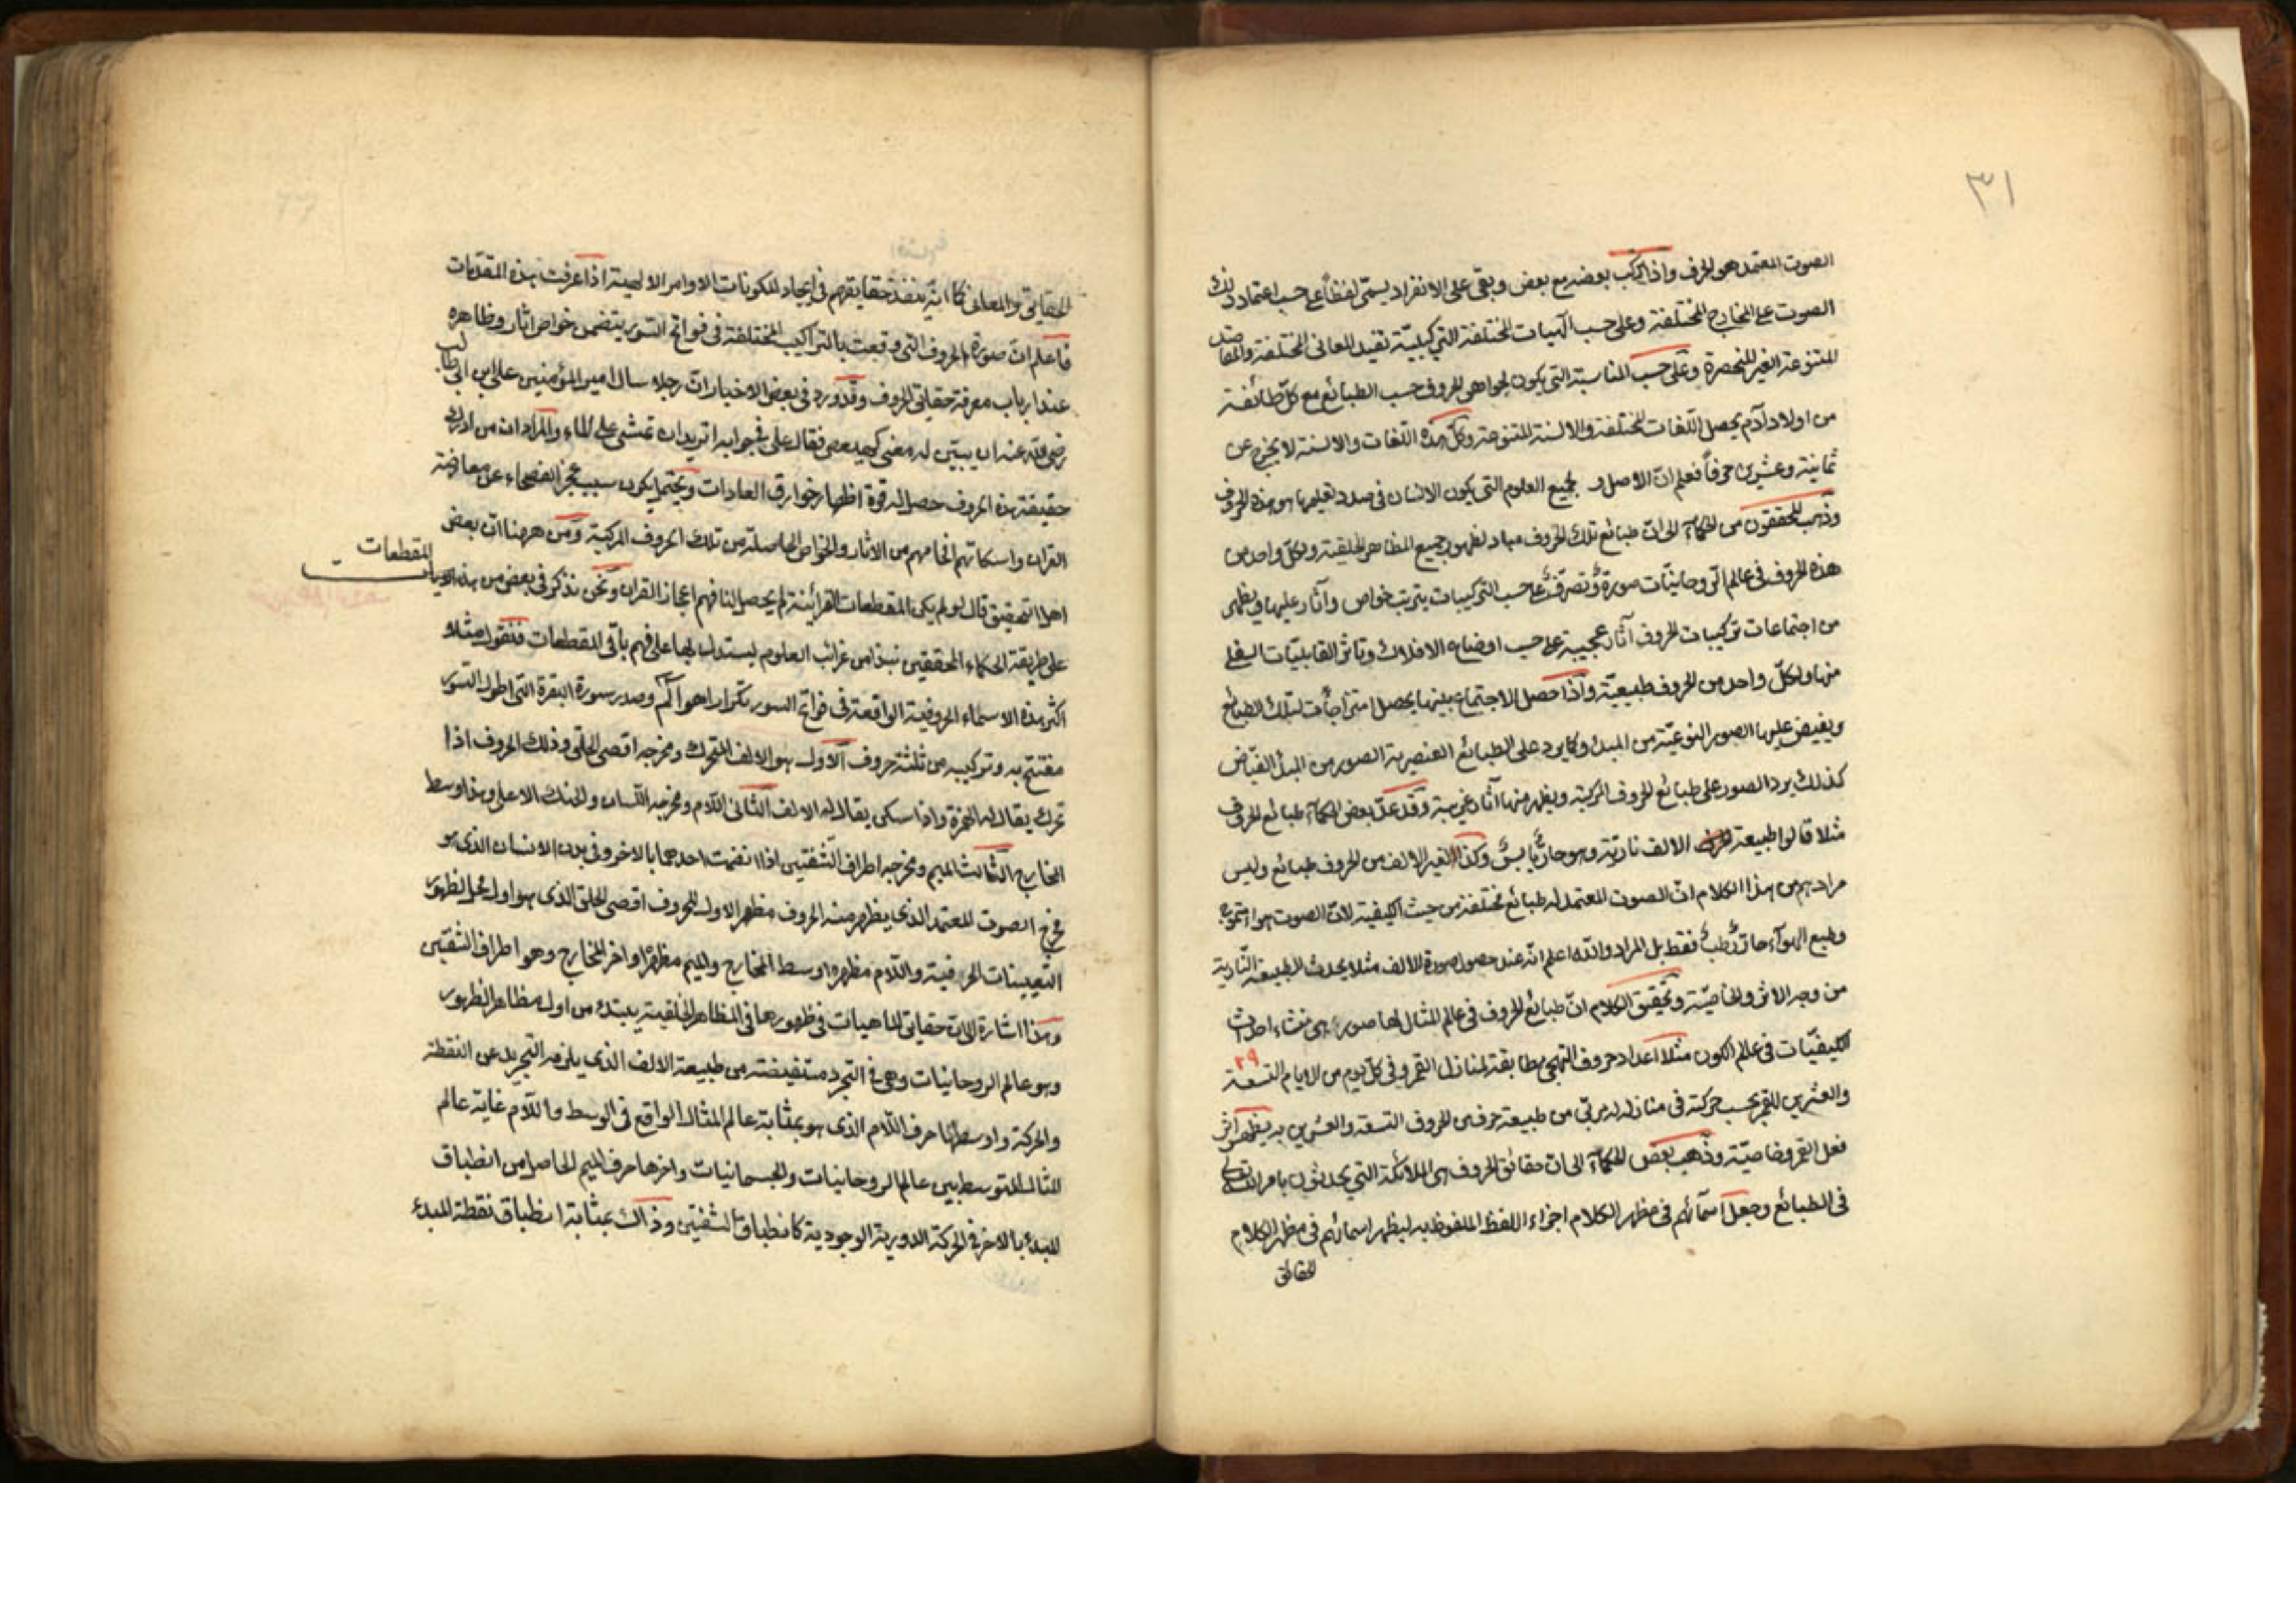 ٣١
الصوت المعتمد هو الحرف واذا تركب بعضه مع بعض وبقى على الانفراد يسمى لفظاً على حسب اعتماد ذلك
الصوت على المخارج المختلفة وعلى حسب الهيات المختلفة التركيبيّة تفيد المعانى المختلفة والمقاصد
المتنوعة الغير المنحصرة وعلى حسب المناسبة التى يكون لجواهر الحروف حسب الطبائع مع كلّ طائفة
من اولاد آدم يحصل اللّغات المختلفة والالسنة المتنوعة وكلّ هذه اللّغات والالسنة لا يخرج عن
ثمانية وعشرين حرفاً فعلم انّ الاصل لجميع العلوم التى يكون الانسان فى صدد تعليمها هو هذه الحروف
وذهب المحققون من الحكمآء الى انّ طبائع تلك الحروف مباد لظهور جميع المظاهر الخلقية ولكلّ واحد من
هذه الحروف فى عالم الروحانيّات صورة وتصرّف على حسب التركيبات يترتب خواص وآثار عليها ويظهر
من اجتماعات تركيبات الحروف آثار عجيبة على حسب اوضاع الافلاك وتاثر القابليّات السفلى
منها ولكلّ واحد من الحروف طبيعيّة واذا حصل الاجتماع بينها يحصل امتزاجات لتلك الطبائع
ويفيض عليها الصور النوعيّة من المبدء وكما يرد على الطبائع العنصرية الصور من المبدء الفيّاض
كذلك يرد الصور على طبائع الحروف المركبة ويظهر منها آثار غريبة وقد عدّ بعض الحكمآء طبائع الحروف
مثلا قالوا طبيعة الالف نارية وهو حارٌّ يابسٌ وكذا لغير الالف من الحروف طبائع وليس
مرادهم من هذا الكلام انّ الصوت المعتمد له طبائع مختلفة من حيث الكيفية لانّ الصوت هواء متموج
وطبع الهوآء حارّ رطب فقط بل المراد والله اعلم انّه عند حصول صورة الالف مثلا يحدث الطبيعة النّارية
من وجه الاثر والخاصيّة وتحقيق الكلام انّ طبائع الحروف فى عالم المثال لها صور هى منشاء احداث
الكيفيّات فى عالم الكون مثلا اعداد حروف التهجى مطابقة لمنازل القمر وفى كلّ يوم من الايام التسعة
٢٩
والعشرين للقمر بحسب حركته فى منازله تربّى من طبيعة حرف من الحروف التسعة والعشرين به يظهر اثر
فعل القمر وخاصيّته وذهب بعض الحكمآء الى ان حقائق الحروف هى الملائكة التى يحدثون بامر الله تعالى
فى الطبائع وجعل اسمآئهم فى مظهر الكلام اجزاء اللفظ الملفوظ به ليظهر اسمائهم فى مظهر الكلام
الحقائق
الحقايق والمعانى كما انّه ينفذ حقايقهم فى ايجاد المكونات الاوامر الالهية اذا عرفت هذه المقدمات
فاعلم انّ صورة الحروف التى وقعت بالتراكيب المختلفة فى فواتح السور يتضمن خواص اثار وظاهره
عند ارباب معرفة حقائق الحروف وقد ورد فى بعض الاخبار انّ رجلا سال امير المؤمنين على ابن ابى طالب
رضى الله عنه ان يبيّن له معنى كهيعص فقال على فى جوابه اتريد ان تمشى على الماء والمراد ان من ادرك
حقيقة هذه الحروف حصل له قوة اظهار خوارق العادات ويحتمل يكون سبب عجز الفصحاء عن معارضة
القران واسكاتهم افحامهم من الاثار والخواص الحاصلة من تلك الحروف المركبة ومن ههنا انّ بعض
اهل التحقيق قال لو لم يكن المقطعات القرائية لم يحصل لنا فهم اعجاز القران ونحن نذكر فى بعض من هذه
المقطعات
على طريقة الحكماء المحققين نبذا من غرائب العلوم ليستدل بها على فهم باقى المقطعات فنقول مثلا
اكثر هذه الاسماء الحروفية الواقعة فى فواتح السور تكرارا هو الٓم وصدر سورة البقرة التى اطول السور
مفتتح به وتركيبه من ثلثة حروف الاول هو الالف المتحرك ومخرجه اقصى الحلق وذلك الحروف اذا
تحرك يقال له الهمزة واذا سكن يقال له الالف الثانى اللام ومخرجه اللسان والحنك الاعلى وهذا اوسط
المخارج الثالث الميم ومخرجه اطراف الشفتين اذا انضمت احدهما بالاخر وفى بدن الانسان الذى هو
مخرج الصوت المعتمد الذى يظهر منه الحروف مظهر الاول للحروف اقصى الحلق الذى هو اول محل لظهور
التعيينات الحرفية واللام مظهره اوسط المخارج والميم مظهره اواخر المخارج وهو اطراف الشفتين
وهذا اشارة الى ان حقايق الماهيات فى ظهورها فى المظاهر الخلقية يبتدء من اول مظاهر الظهور
وهو عالم الروحانيات وهى فى التجرد مستفيضة من طبيعة الالف الذى يلزمه التجريد عن النقطة
والحركة واوسطها حرف اللام الذى هو بمثابة عالم المثال الواقع فى الوسط واللام غاية عالم
المثال المتوسط بين عالم الروحانيات والجسمانيات واخرها حرف الميم الحاصل من انطباق
المبدء بالاخر فى الحركة الدورية الوجودية كانطباق الشفتين وذاك بمثابة انطباق نقطة المبدء